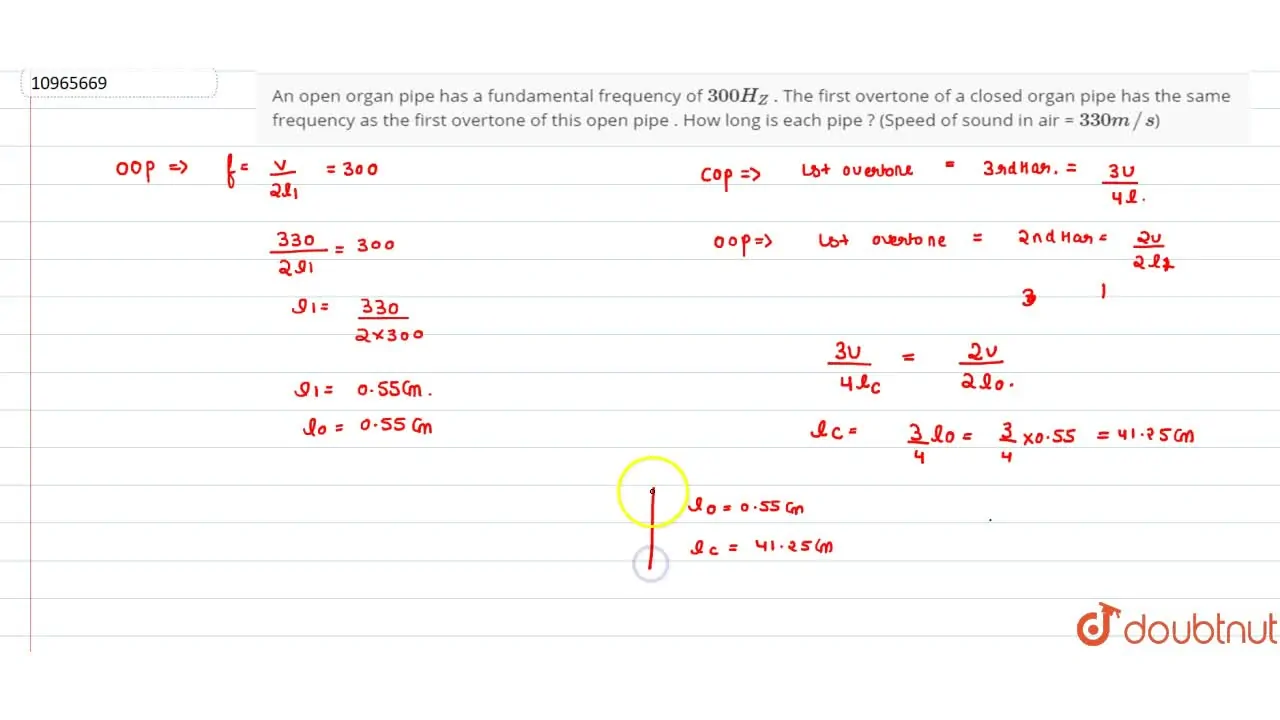 10965669
An open organ pipe has a fundamental frequency of 300H_Z . The first overtone of a closed organ pipe has the same
frequency as the first overtone of this open pipe . How long is each pipe ? (Speed of sound in air = 330m / s)
OOP => f = v/2l1 = 300
330/2l1 = 300
l1 = 330/2×300
l1 = 0.55cm.
lo = 0.55cm
COP => 1st overtone = 3rd Har. = 3v/4l.
OOP => 1st overtone = 2nd Har = 2v/2l2
3 1
3v/4lc = 2v/2lo.
lc = 3/4 lo = 3/4 ×0.55 = 41.25cm
lo = 0.55cm
lc = 41.25cm
doubtnut